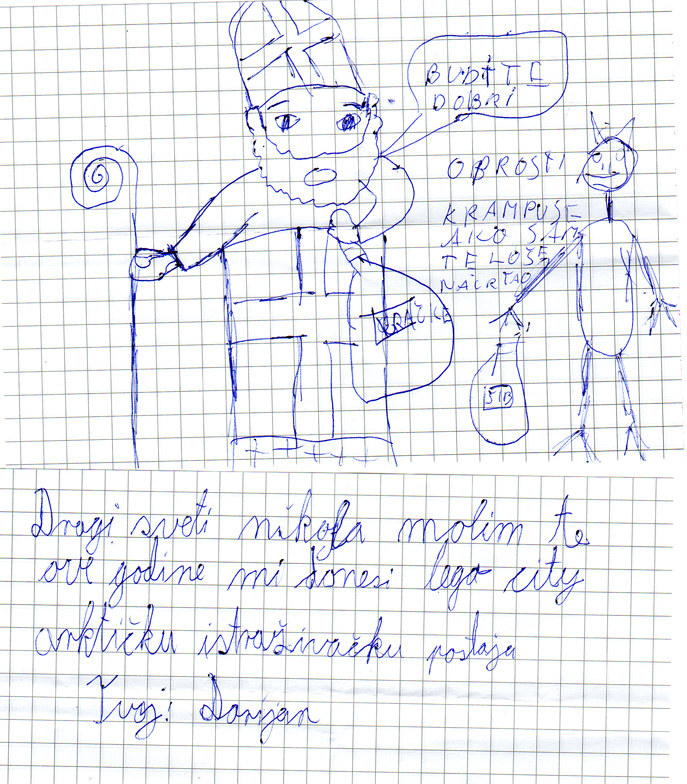 BUDITE
DOBRI
OPROSTI
KRAMPUSE
AKO SAM
TE LOŠE
NACRTAO
IGRAČKE
ŠIB
Dragi sveti nikola molim te
ove godine mi donesi lego city
arktičku istraživačku postaju
Tvoj: Dorijan